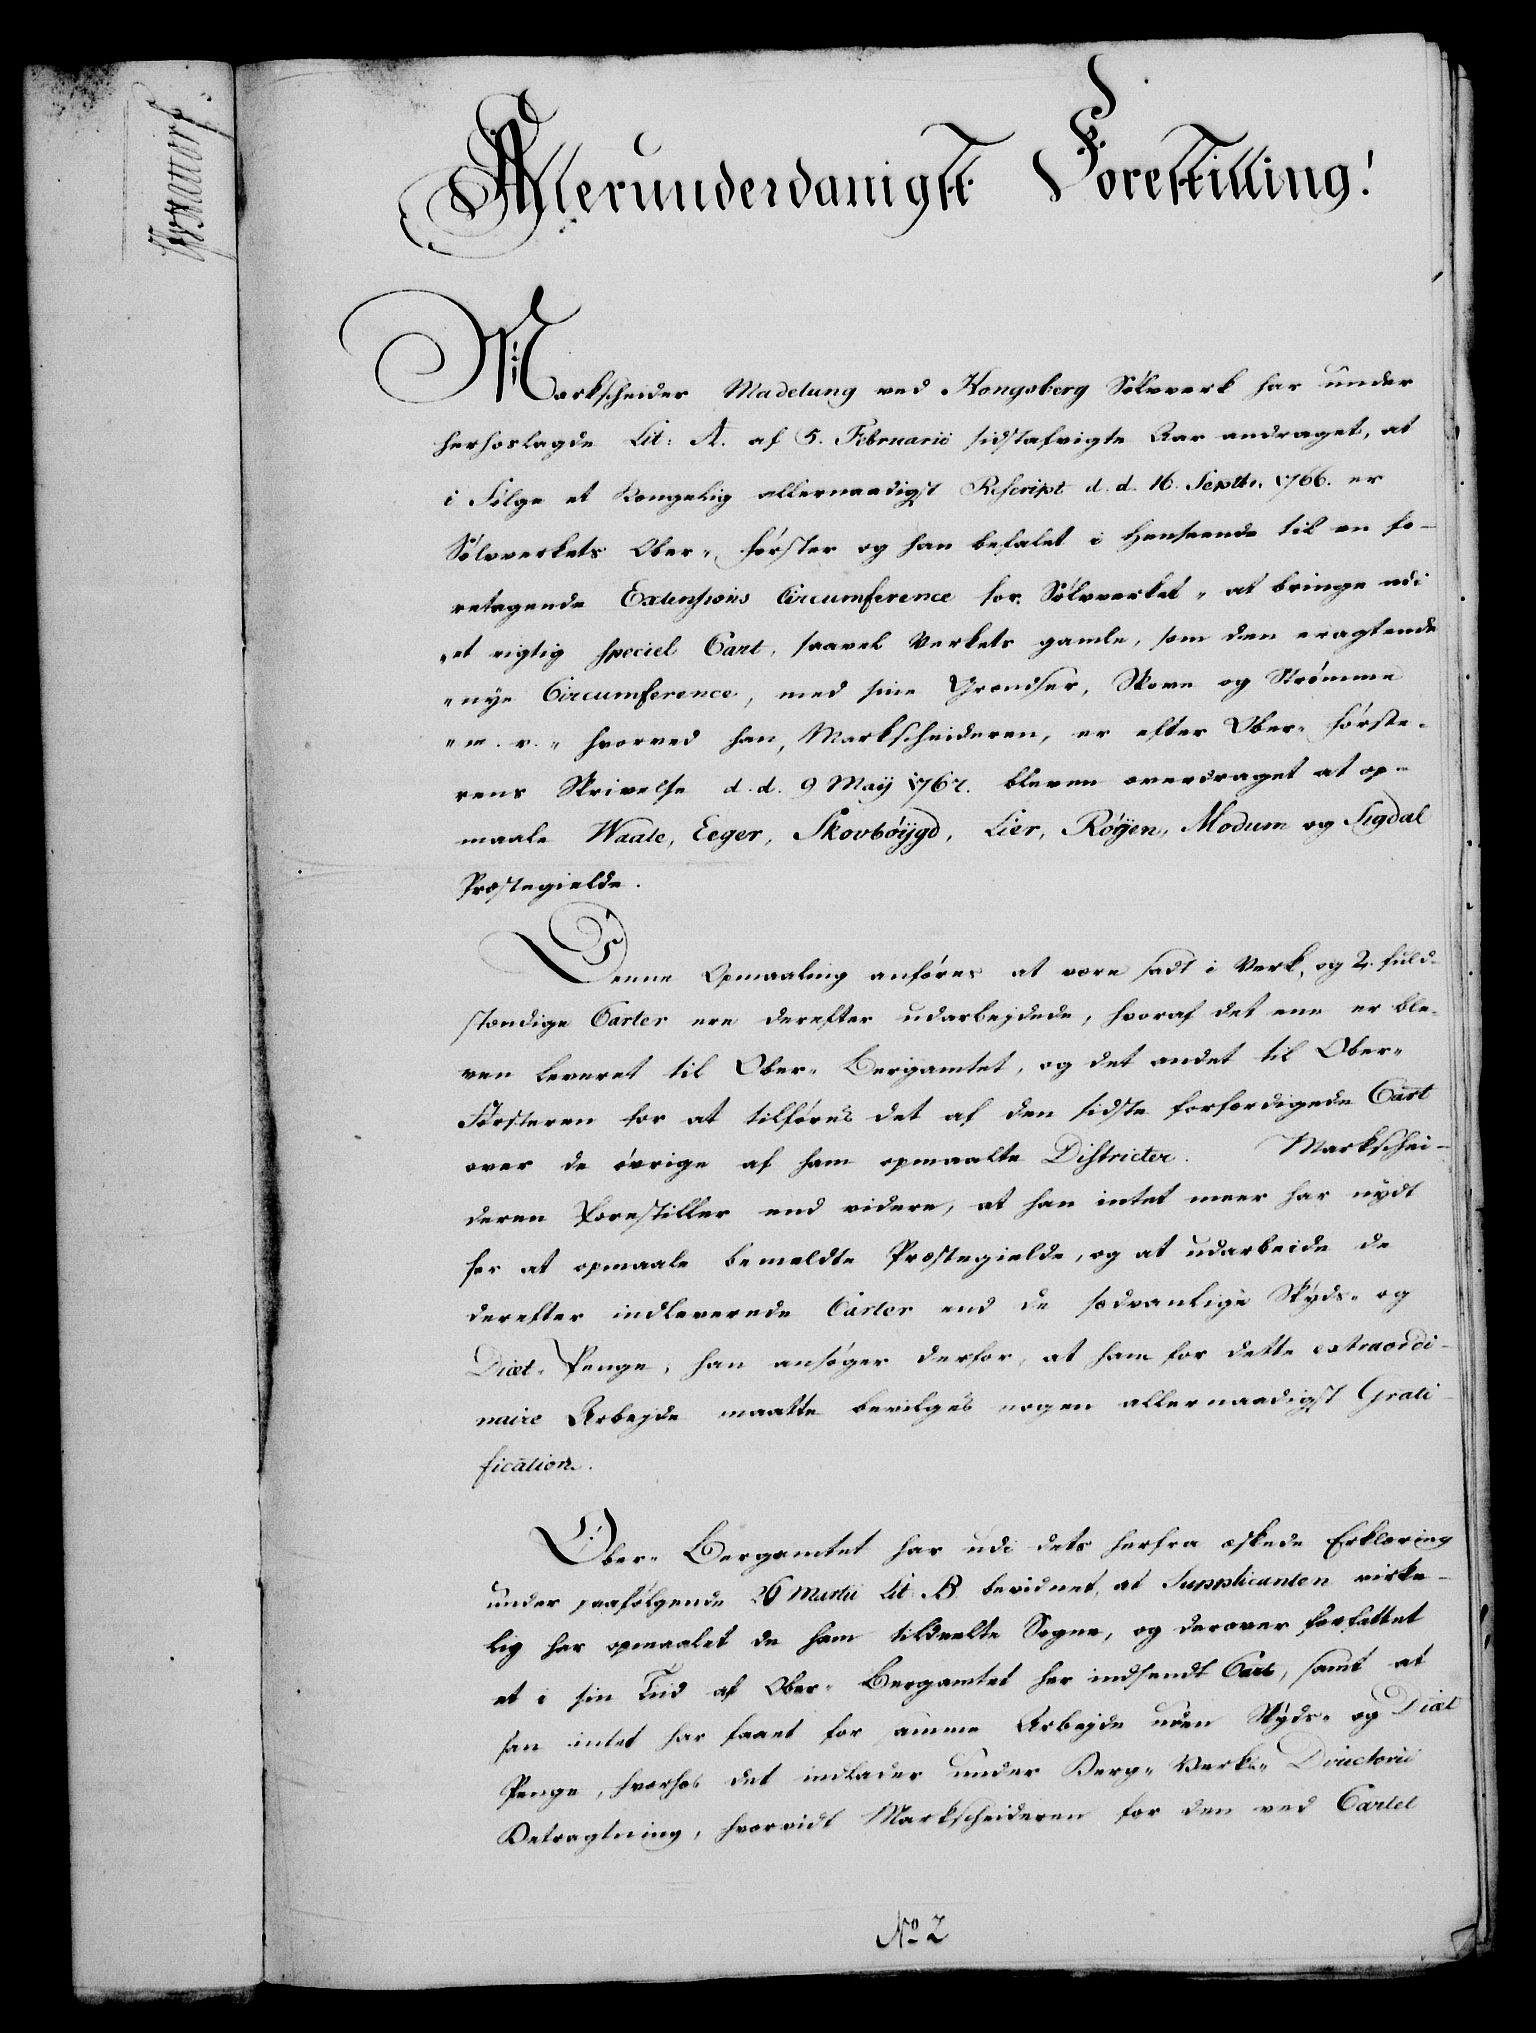 Allerunderdanigst Forestilling!
Markscheider Madelung ved Kongsberg Sølvverk har under
herhoslagde Lit: A. af 5. Februarii sidstafvigte Aar andraget, at
i Følge et Kongelig allernaadigst Rescript d. d. 16. Septbr. 1766. er
Sølvverkets Ober„ førster og han befalet i Henseende til en fo-
retagende Extensions Circumference for Sølvverket „ at bringe udi
„et rigtig speciel Cart, saavel Verkets gamle, som den eragtende
„nye Circumference, med sine Grændser, Skove og Strømme
„m. v. „ hvorved han, Markscheideren, er efter Ober„ første-
rens Skrivelse d. d. 9 Maÿ 1767. bleven overdraget at op-
maale Waale, Eeger, Skovbøÿgd, Lier, Røÿen, Modum og Sigdal
Præstegielde.
Denne Opmaaling anføres at være sadt i Verk, og 2. fuld-
stændige Carter ere derefter udarbejdede, hvoraf det ene er ble-
ven leveret til Ober„ Bergamtet, og det andet til Ober„
Førsteren for at tilføres det af den sidste forfærdigede Cart
over de øvrige af ham opmaalte Districter. Markschei-
deren forestiller end videre, at han intet meer har nÿdt
for at opmaale bemeldte Præstegielde, og at udarbeide de
derefter indleverede Carter end de sædvanlige Skÿds„ og
Diæt„ Penge, han ansøger derfor, at ham for dette extraordi-
naire Arbejde maatte bevilges nogen allernaadigst Grati-
fication.
Ober„ Bergamtet har udi dets herfra æskede Erklæring
under paafølgende 26 Martii Lit. B. bevidnet, at Supplicanten virke-
lig har opmaalet de ham tildeelte Sogne, og derover forfattet
et i sin Tiid af Ober„ Bergamtet her indsendt Cart, samt at
han intet har faaet for samme Arbejde uden Skÿds„ og Diæt
Penge, hvorhos det indlader under Berg„ Verks„ Directorii
Betragtning, hvorvidt Markscheideren for den ved Cartet
No 2